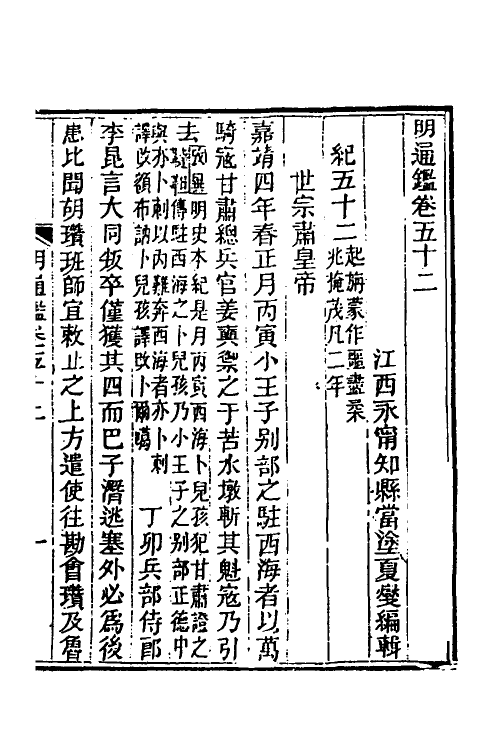 明通鑑卷五十二
江西永甯知縣當塗夏燮編輯
紀五十二起旃蒙作噩盡柔
兆掩茂凡二年
世宗肅皇帝
嘉靖四年春正月丙寅小王子别部之駐西海者以萬
騎寇甘肅總兵官姜奭禦之于苦水墩斬其魁寇乃引
去攷異明史本紀是月丙寅西海卜兒孩犯甘肅證之
韃靼傳駐西海之卜兒孩乃小王子之别部正德中
與亦卜剌以内難奔西海者亦卜剌
譯改額布訥卜兒孩譯改卜爾噶
丁卯兵部侍郎
李昆言大同叛卒僅獲其四而巴子潛逃塞外必爲後
患比聞胡瓚班師宜敕止之上方遣使往勘會瓚及魯
明通鑑卷五十二
一